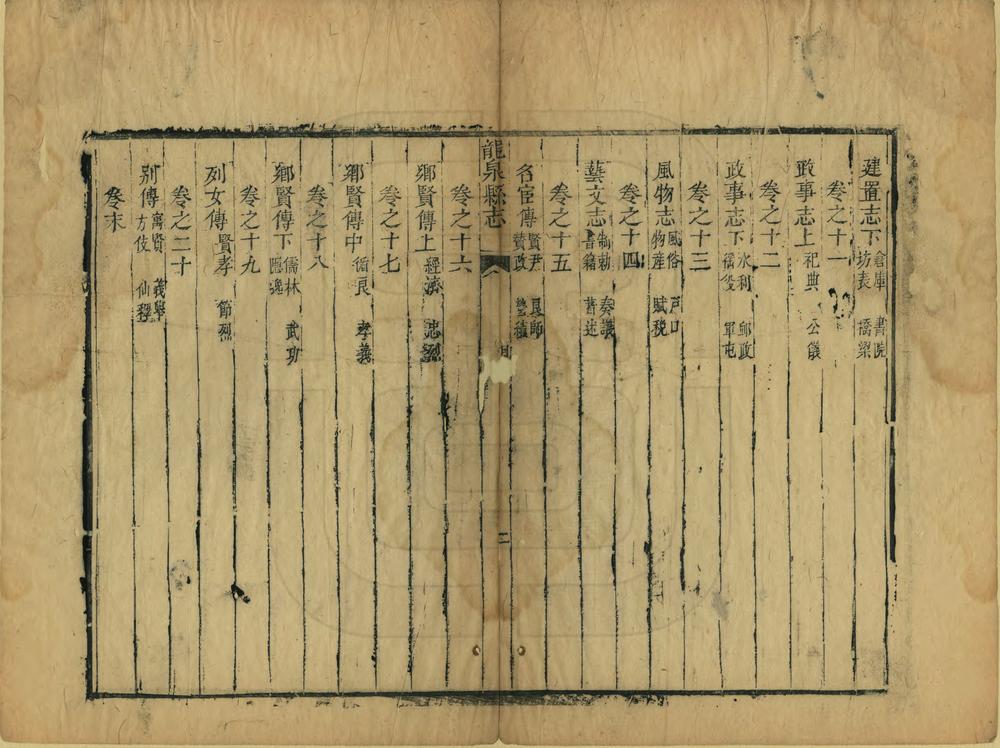 建置志下 倉庫 坊表 書院 橋梁
卷之十一
政事志上 祀典 公儀
卷之十二
政事志下 水利 徭役 郵政 軍屯
卷之十三
風物志 風俗 物産 戸口 賦税
卷之十四
藝文志 制勅 書籍 奏議 著述
卷之十五
名宦傳 賢尹 賛政 良師
龍泉縣志
二
卷之十六
鄉賢傳上 經濟 忠烈
卷之十七
鄉賢傳中 循良 孝義
卷之十八
鄉賢傳下 儒林 隱逸 武功
卷之十九
列女傳 賢孝 節烈
卷之二十
別傳 寓賢 方伎 義舉 仙釋
卷末